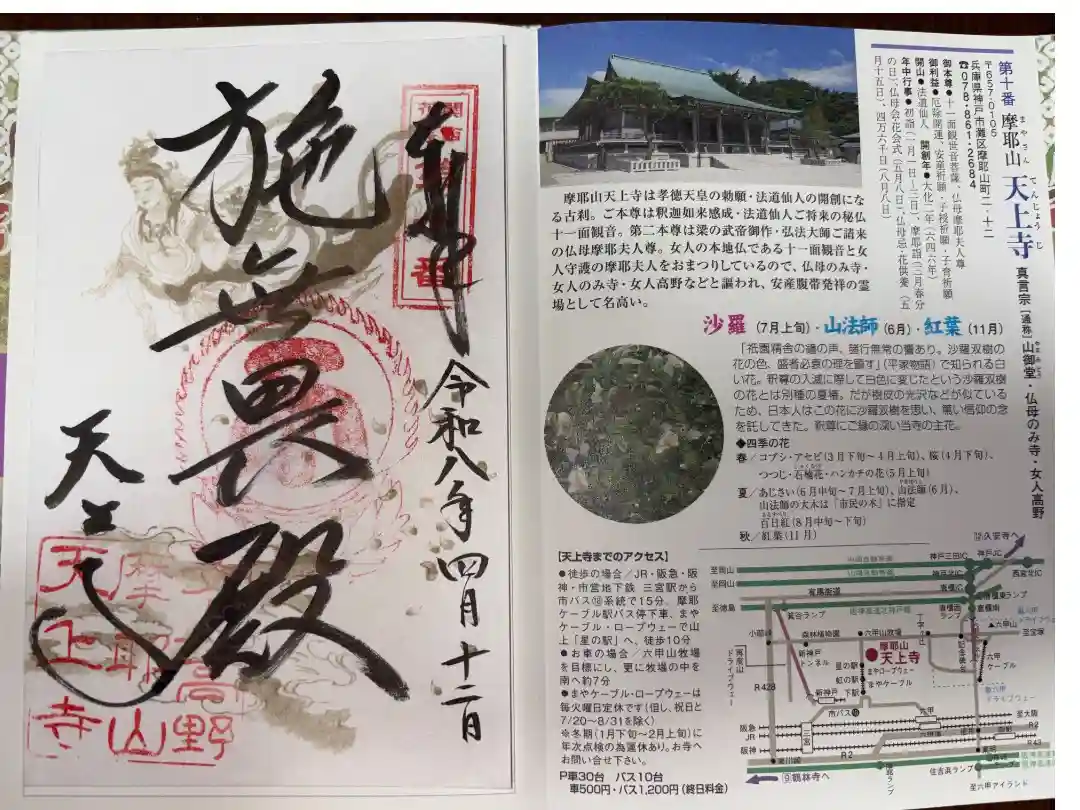 奉拝
施無畏殿
令和八年四月十二日
天上寺
天上寺
摩耶山
第十番 摩耶山 天上寺 真言宗[通称]山御堂・仏母のみ寺・女人高野
まやさん
てんじょうじ
〒657-0105
兵庫県神戸市灘区摩耶山町二-十二
☎078-861-2684
御本尊●十一面観世音菩薩、仏母摩耶夫人尊
御利益●厄除開運、安産祈願・子授祈願・子育祈願
開山●法道仙人 開創年●大化二年(六四六年)
年中行事●初詣(一月一日~三日)、摩耶詣(三月春分
の日)、仏母会・花会式(五月八日)、仏母忌・花供養(五
月十五日)、四万六千日(八月八日)
摩耶山天上寺は孝徳天皇の勅願・法道仙人の開創にな
る古刹。ご本尊は釈迦如来感成・法道仙人ご将来の秘仏
十一面観音。第二本尊は梁の武帝御作・弘法大師ご請来
の仏母摩耶夫人尊。女人の本地仏である十一面観音と女
人守護の摩耶夫人をおまつりしているので、仏母のみ寺・
女人のみ寺・女人高野などと謳われ、安産腹帯発祥の霊
場として名高い。
沙羅(7月上旬)・山法師(6月)・紅葉(11月)
「祇園精舎の鐘の声、諸行無常の響あり。沙羅双樹の
花の色、盛者必衰の理を顕す」(平家物語)で知られる白
い花。釈尊の入滅に際して白色に変じたという沙羅双樹
の花とは別種の夏椿。だが樹皮の光沢などが似ている
ため、日本人はこの花に沙羅双樹を思い、篤い信仰の念
を託してきた。釈尊にご縁の深い当寺の主花。
◆四季の花
春/コブシ・アセビ(3月下旬~4月上旬)、桜(4月下旬)、
つつじ・石楠花・ハンカチの花(5月上旬)
夏/あじさい(6月中旬~7月上旬)、山法師(6月)、
山法師の大木は「市民の木」に指定
百日紅(8月中旬~下旬)
秋/紅葉(11月)
[天上寺までのアクセス]
●徒歩の場合/JR・阪急・阪
神・市営地下鉄 三宮駅から
市バス⑱系統で15分、摩耶
ケーブル駅バス停下車、まや
ケーブル・ロープウェーで山
上「星の駅」へ、徒歩10分
●お車の場合/六甲山牧場
を目標にし、更に牧場の中を
南へ約7分
●まやケーブル・ロープウェーは
毎火曜日定休です(但し、祝日と
7/20~8/31を除く)
※冬期(1月下旬~2月上旬)に
年次点検の為運休あり。お寺へ
お問い合せ下さい。
P車30台 バス10台
車500円・バス1,200円(終日料金)
⑫久安寺へ
至岡山
至岡山
至徳島
中国自動車道
山陽自動車道
有馬街道
神戸三田IC
神戸JC
神戸北IC
西宮北IC
箕谷ランプ
小部峠
森林植物園
六甲山牧場
六甲山
至宝塚
摩耶山
天上寺
新神戸
トンネル
再度山
ドライブウェー
星の駅
まやロープウェー
虹の駅
まやケーブル
下駅
六甲
ケーブル
ドライブウェー
R428
新神戸
市バス⑱
六甲
阪急
JR
阪神
三宮
R2
至大阪
R2
R43
住吉浜ランプ
至六甲アイランド
⑨鶴林寺へ